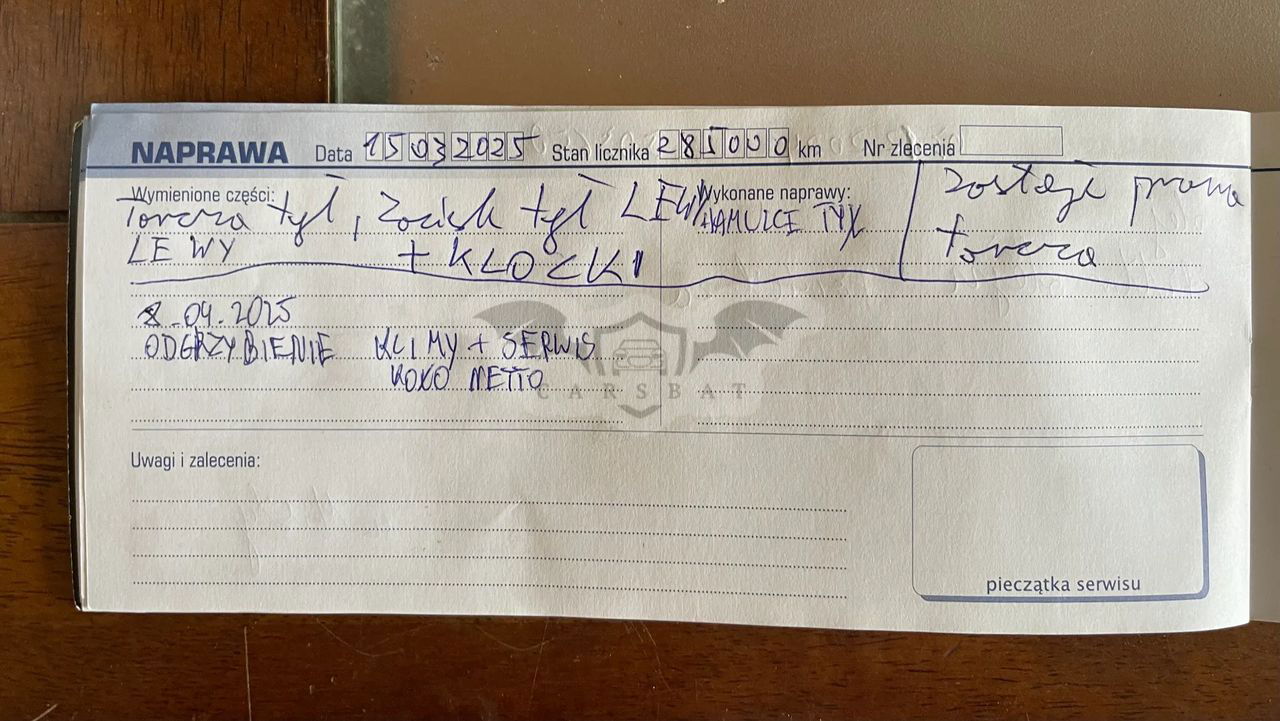 NAPRAWA Data 15032025 Stan licznika 285000 km Nr zlecenia
Wymienione części:
Tarcza tył, Zacisk tył LEWY
LEWY + KLOCKI
Wykonane naprawy:
HAMULCE TYŁ
Zostaje prawa
tarcza
8.04.2025
ODGRZYBIENIE KLIMY + SERWIS
KOKO NETTO
CARSBAT
Uwagi i zalecenia:
pieczątka serwisu